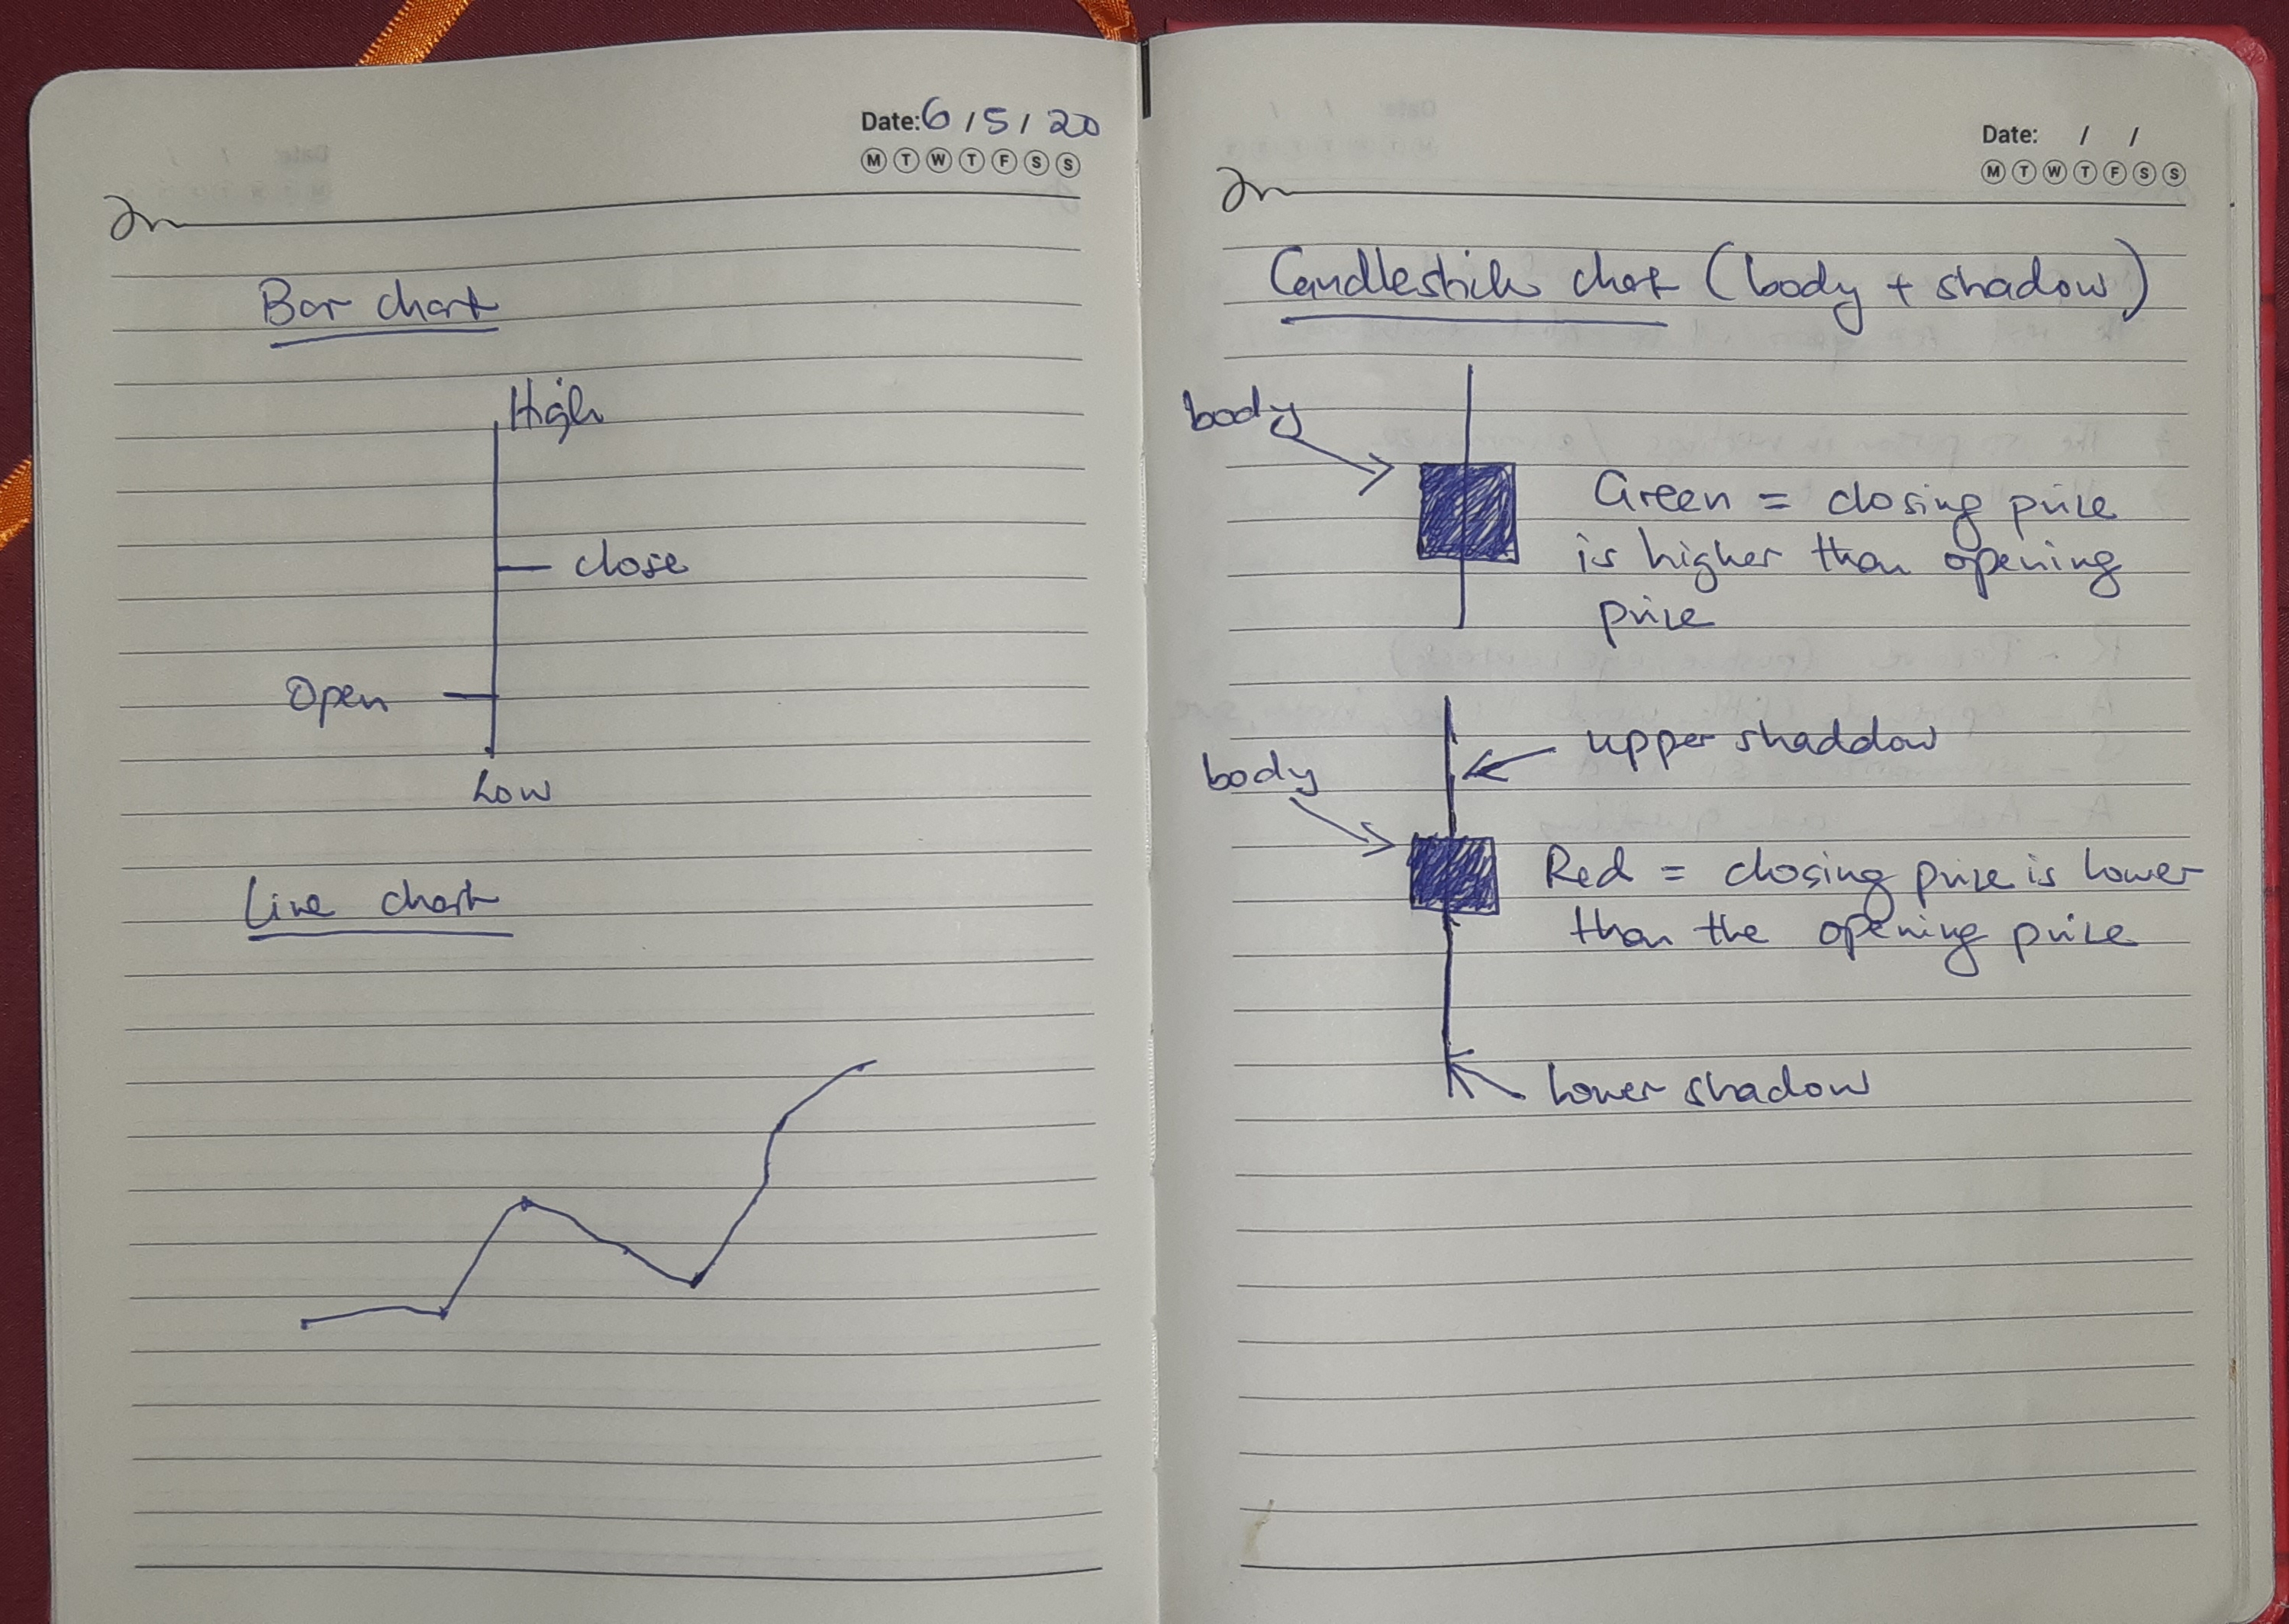 Date: 6 / 5 / 20
M T W T F S S
Bar chart
High
close
Open
Low
Line chart
Date: / /
M T W T F S S
Candlestick chart (body + shadow)
body
Green = closing price
is higher than opening
price
upper shaddow
body
Red = closing price is lower
than the opening price
lower shadow